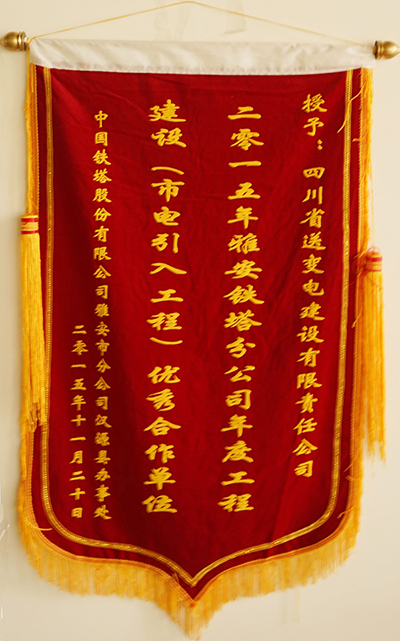 授予：四川省送变电建设有限责任公司
二零一五年雅安铁塔分公司年度工程
建设（市电引入工程）优秀合作单位
中国铁塔股份有限公司雅安市分公司汉源县办事处
二零一五年十一月二十日